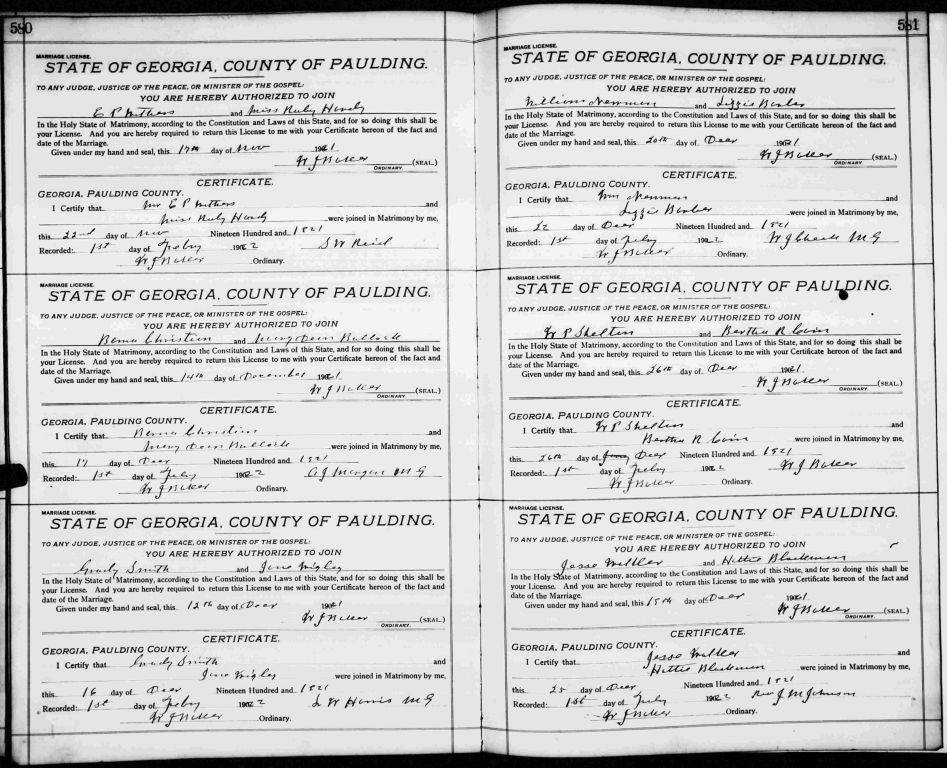 580
MARRIAGE LICENSE.
STATE OF GEORGIA, COUNTY OF PAULDING.
TO ANY JUDGE, JUSTICE OF THE PEACE, OR MINISTER OF THE GOSPEL:
YOU ARE HEREBY AUTHORIZED TO JOIN
E P Withers and Miss Ruby Hardy
In the Holy State of Matrimony, according to the Constitution and Laws of this State, and for so doing this shall be
your License. And you are hereby required to return this License to me with your Certificate hereon of the fact and
date of the Marriage.
Given under my hand and seal, this 17th day of Nov 1921
W J Baker (SEAL.)
ORDINARY.
CERTIFICATE.
GEORGIA, PAULDING COUNTY.
I Certify that Mr E P Withers and
Miss Ruby Hardy were joined in Matrimony by me,
this 22nd day of Nov Nineteen Hundred and 1921
Recorded: 1st day of Feby 1922 S W Reid
W J Baker Ordinary.
MARRIAGE LICENSE.
STATE OF GEORGIA, COUNTY OF PAULDING.
TO ANY JUDGE, JUSTICE OF THE PEACE, OR MINISTER OF THE GOSPEL:
YOU ARE HEREBY AUTHORIZED TO JOIN
Berna Christian and Bullock
In the Holy State of Matrimony, according to the Constitution and Laws of this State, and for so doing this shall be
your License. And you are hereby required to return this License to me with your Certificate hereon of the fact and
date of the Marriage.
Given under my hand and seal, this 14th day of December 1921
W J Baker (SEAL.)
ORDINARY.
CERTIFICATE.
GEORGIA, PAULDING COUNTY.
I Certify that Berna Christian and
Bullock were joined in Matrimony by me,
this 17 day of Decr Nineteen Hundred and 1921
Recorded: 1st day of Feby 1922 A J Morgan M G
W J Baker Ordinary.
MARRIAGE LICENSE.
STATE OF GEORGIA, COUNTY OF PAULDING.
TO ANY JUDGE, JUSTICE OF THE PEACE, OR MINISTER OF THE GOSPEL:
YOU ARE HEREBY AUTHORIZED TO JOIN
Grady Smith and Wigley
In the Holy State of Matrimony, according to the Constitution and Laws of this State, and for so doing this shall be
your License. And you are hereby required to return this License to me with your Certificate hereon of the fact and
date of the Marriage.
Given under my hand and seal, this 12th day of Decr 1921
W J Baker (SEAL.)
ORDINARY.
CERTIFICATE.
GEORGIA, PAULDING COUNTY.
I Certify that Grady Smith and
Wigley were joined in Matrimony by me,
this 16 day of Decr Nineteen Hundred and 1921
Recorded: 1st day of Feby 1922 W Harris M G
W J Baker Ordinary.
581
MARRIAGE LICENSE.
STATE OF GEORGIA, COUNTY OF PAULDING.
TO ANY JUDGE, JUSTICE OF THE PEACE, OR MINISTER OF THE GOSPEL:
YOU ARE HEREBY AUTHORIZED TO JOIN
William Newman and Lizzie Barber
In the Holy State of Matrimony, according to the Constitution and Laws of this State, and for so doing this shall be
your License. And you are hereby required to return this License to me with your Certificate hereon of the fact and
date of the Marriage.
Given under my hand and seal, this 20th day of Decr 1921
W J Baker (SEAL.)
ORDINARY.
CERTIFICATE.
GEORGIA, PAULDING COUNTY.
I Certify that Wm Newman and
Lizzie Barber were joined in Matrimony by me,
this 22 day of Decr Nineteen Hundred and 1921
Recorded: 1st day of Feby 1922 W J M G
W J Baker Ordinary.
MARRIAGE LICENSE.
STATE OF GEORGIA, COUNTY OF PAULDING.
TO ANY JUDGE, JUSTICE OF THE PEACE, OR MINISTER OF THE GOSPEL:
YOU ARE HEREBY AUTHORIZED TO JOIN
W P Shelton and Bertha R Cain
In the Holy State of Matrimony, according to the Constitution and Laws of this State, and for so doing this shall be
your License. And you are hereby required to return this License to me with your Certificate hereon of the fact and
date of the Marriage.
Given under my hand and seal, this 26th day of Decr 1921
W J Baker (SEAL.)
ORDINARY.
CERTIFICATE.
GEORGIA, PAULDING COUNTY.
I Certify that W P Shelton and
Bertha R Cain were joined in Matrimony by me,
this 26th day of Decr Nineteen Hundred and 1921
Recorded: 1st day of Feby 1922 W J Baker
W J Baker Ordinary.
MARRIAGE LICENSE.
STATE OF GEORGIA, COUNTY OF PAULDING.
TO ANY JUDGE, JUSTICE OF THE PEACE, OR MINISTER OF THE GOSPEL:
YOU ARE HEREBY AUTHORIZED TO JOIN
Jesse and Hettie Blackmon
In the Holy State of Matrimony, according to the Constitution and Laws of this State, and for so doing this shall be
your License. And you are hereby required to return this License to me with your Certificate hereon of the fact and
date of the Marriage.
Given under my hand and seal, this day of Decr 1921
W J Baker (SEAL.)
ORDINARY.
CERTIFICATE.
GEORGIA, PAULDING COUNTY.
I Certify that Jesse and
Hettie Blackmon were joined in Matrimony by me,
this 25 day of Decr Nineteen Hundred and 1921
Recorded: 1st day of Feby 1922 Rev J M Johnson
W J Baker Ordinary.